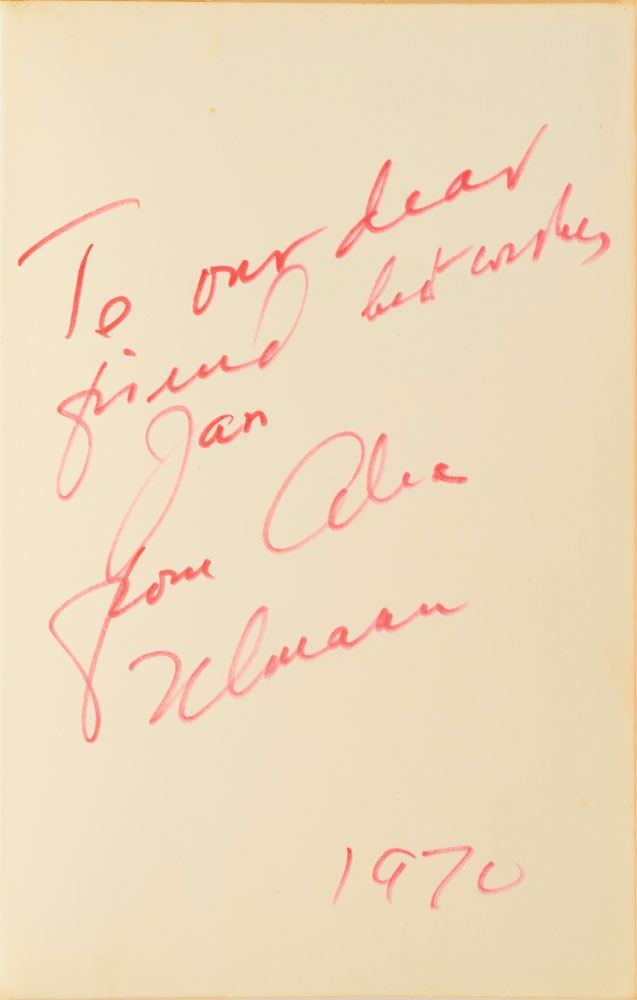 To our dear
friend best wishes
Jan
from Alec
Ulmann
1970